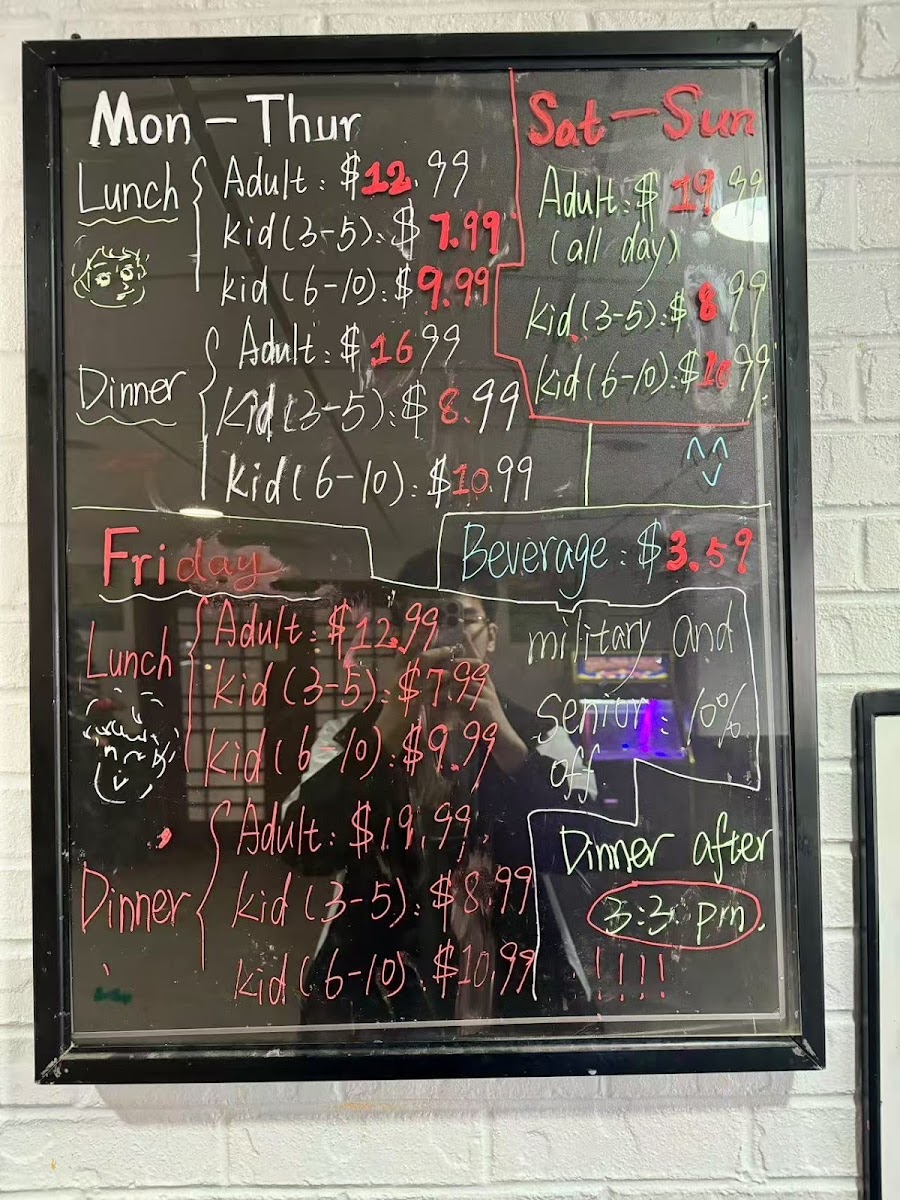 Mon - Thur
Lunch
Adult: $12.99
kid (3-5): $7.99
kid (6-10): $9.99
Dinner
Adult: $16.99
kid (3-5): $8.99
kid (6-10): $10.99
Sat - Sun
Adult: $19.99
(all day)
kid (3-5): $8.99
kid (6-10): $10.99
Beverage: $3.59
Friday
Lunch
Adult: $12.99
kid (3-5): $7.99
kid (6-10): $9.99
Dinner
Adult: $19.99
kid (3-5): $8.99
kid (6-10): $10.99
military and
Senior: 10%
off
Dinner after
3:3 pm
!!!!